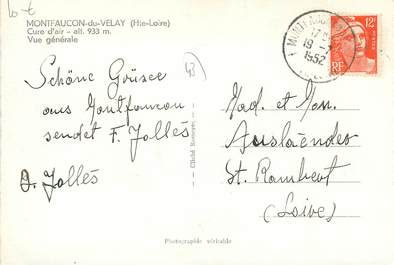 MONTFAUCON-du-VELAY (Hte-Loire)
Cure d'air - alt. 933 m.
Vue générale
43
Schöne Grüsse
aus Montfaucon
sendet F. Jollès
A. Jollès
17H
19-7
1952
12F
RF
Mad. et Mon.
Auslaender
St. Rambert
(Loire)
Photographie véritable